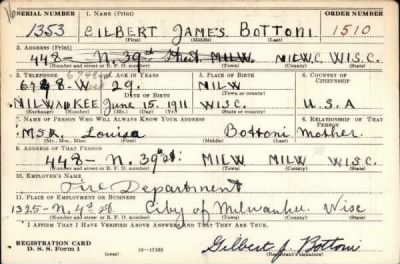 SERIAL NUMBER 1. NAME (Print) ORDER NUMBER
1353 GILBERT JAMES BOTTONI 1510
(First) (Middle) (Last)
2. ADDRESS (Print)
448- N. 39th Street MILW. MILW.C. WISC.
(Number and street or R. F. D. number) (Town) (County) (State)
3. TELEPHONE 4. AGE IN YEARS 5. PLACE OF BIRTH 6. COUNTRY OF CITIZENSHIP
678-W 29. MILW
DATE OF BIRTH (Town or county)
MILWAUKEE June 15. 1911 WISC. U.S.A
(Exchange) (Number) (Mo.) (Day) (Yr.) (State or country)
7. NAME OF PERSON WHO WILL ALWAYS KNOW YOUR ADDRESS 8. RELATIONSHIP OF THAT PERSON
MSR. Louisa Bottoni Mother.
(Mr., Mrs., Miss) (First) (Middle) (Last)
9. ADDRESS OF THAT PERSON
448- N. 39st. MILW MILW Wisc.
(Number and street or R. F. D. number) (Town) (County) (State)
10. EMPLOYER'S NAME
Fire Department
11. PLACE OF EMPLOYMENT OR BUSINESS
1325-N. 4 st City of Milwaukee Wisc
(Number and street or R. F. D. number) (Town) (County) (State)
I AFFIRM THAT I HAVE VERIFIED ABOVE ANSWERS AND THAT THEY ARE TRUE.
REGISTRATION CARD
D. S. S. Form 1 (over) Gilbert J. Bottoni
(Registrant's signature)